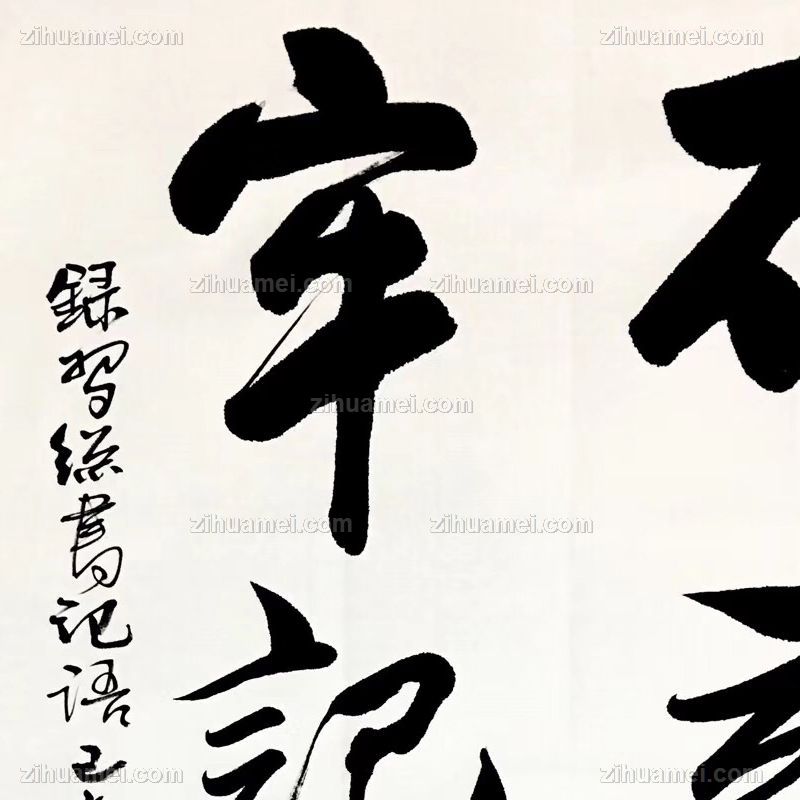 牢記
錄習總書記語己
zihuamei.com
zihuamei.com
zihuamei.com
zihuamei.com
zihuamei.com
zihuamei.com
zihuamei.com
zihuamei.com
zihuamei.com